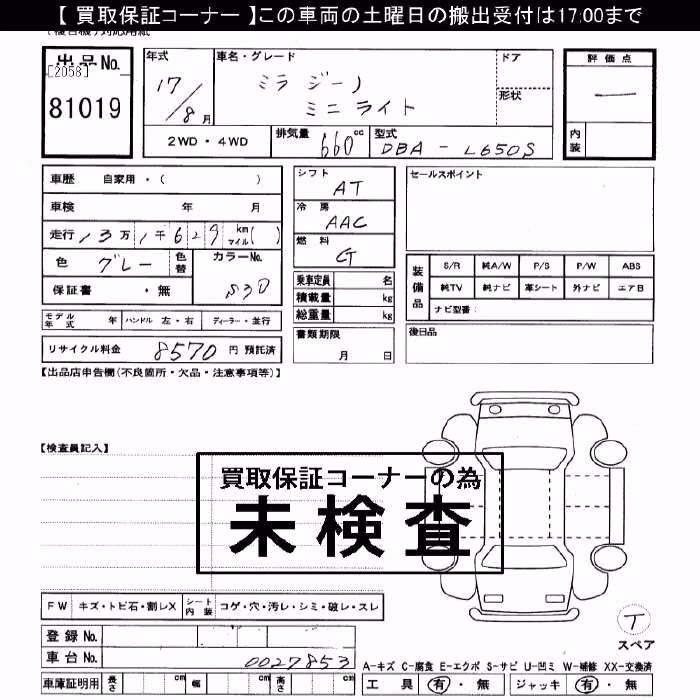 【 買取保証コーナー 】この車両の土曜日の搬出受付は17:00まで
出品No.
[2058]
81019
年式
17/8月
車名・グレード
ミラ ジーノ
ミニライト
ドア
形状
評価点
―
内装
2WD・4WD
排気量 660 cc
型式 DBA-L650S
車歴 自家用・( )
車検 年 月
走行 13万1千629 km マイル( )
色 グレー
色替
カラーNo. S30
保証書 ・無
モデル年式 年
ハンドル 左・右
ディーラー・並行
リサイクル料金 8570 円 預託済
シフト AT
冷房 AAC
燃料 G
乗車定員 名
積載量 kg
総重量 kg
書類期限 月 日
セールスポイント
装備品
S/R 純A/W P/S P/W ABS
純TV 純ナビ 革シート 外ナビ エアB
ナビ型番:
後日品
【出品店申告欄(不良箇所・欠品・注意事項等)】
【検査員記入】
買取保証コーナーの為
未検査
FW キズ・トビ石・割レX
シート内装 コゲ・穴・汚レ・シミ・破レ・スレ
登録No.
車台No. 0027853
車庫証明用 長さ cm 幅 cm 高さ cm
T
スペア
A-キズ C-腐食 E-エクボ S-サビ U-凹ミ W-補修 XX-交換済
工具 有・無 ジャッキ 有・無